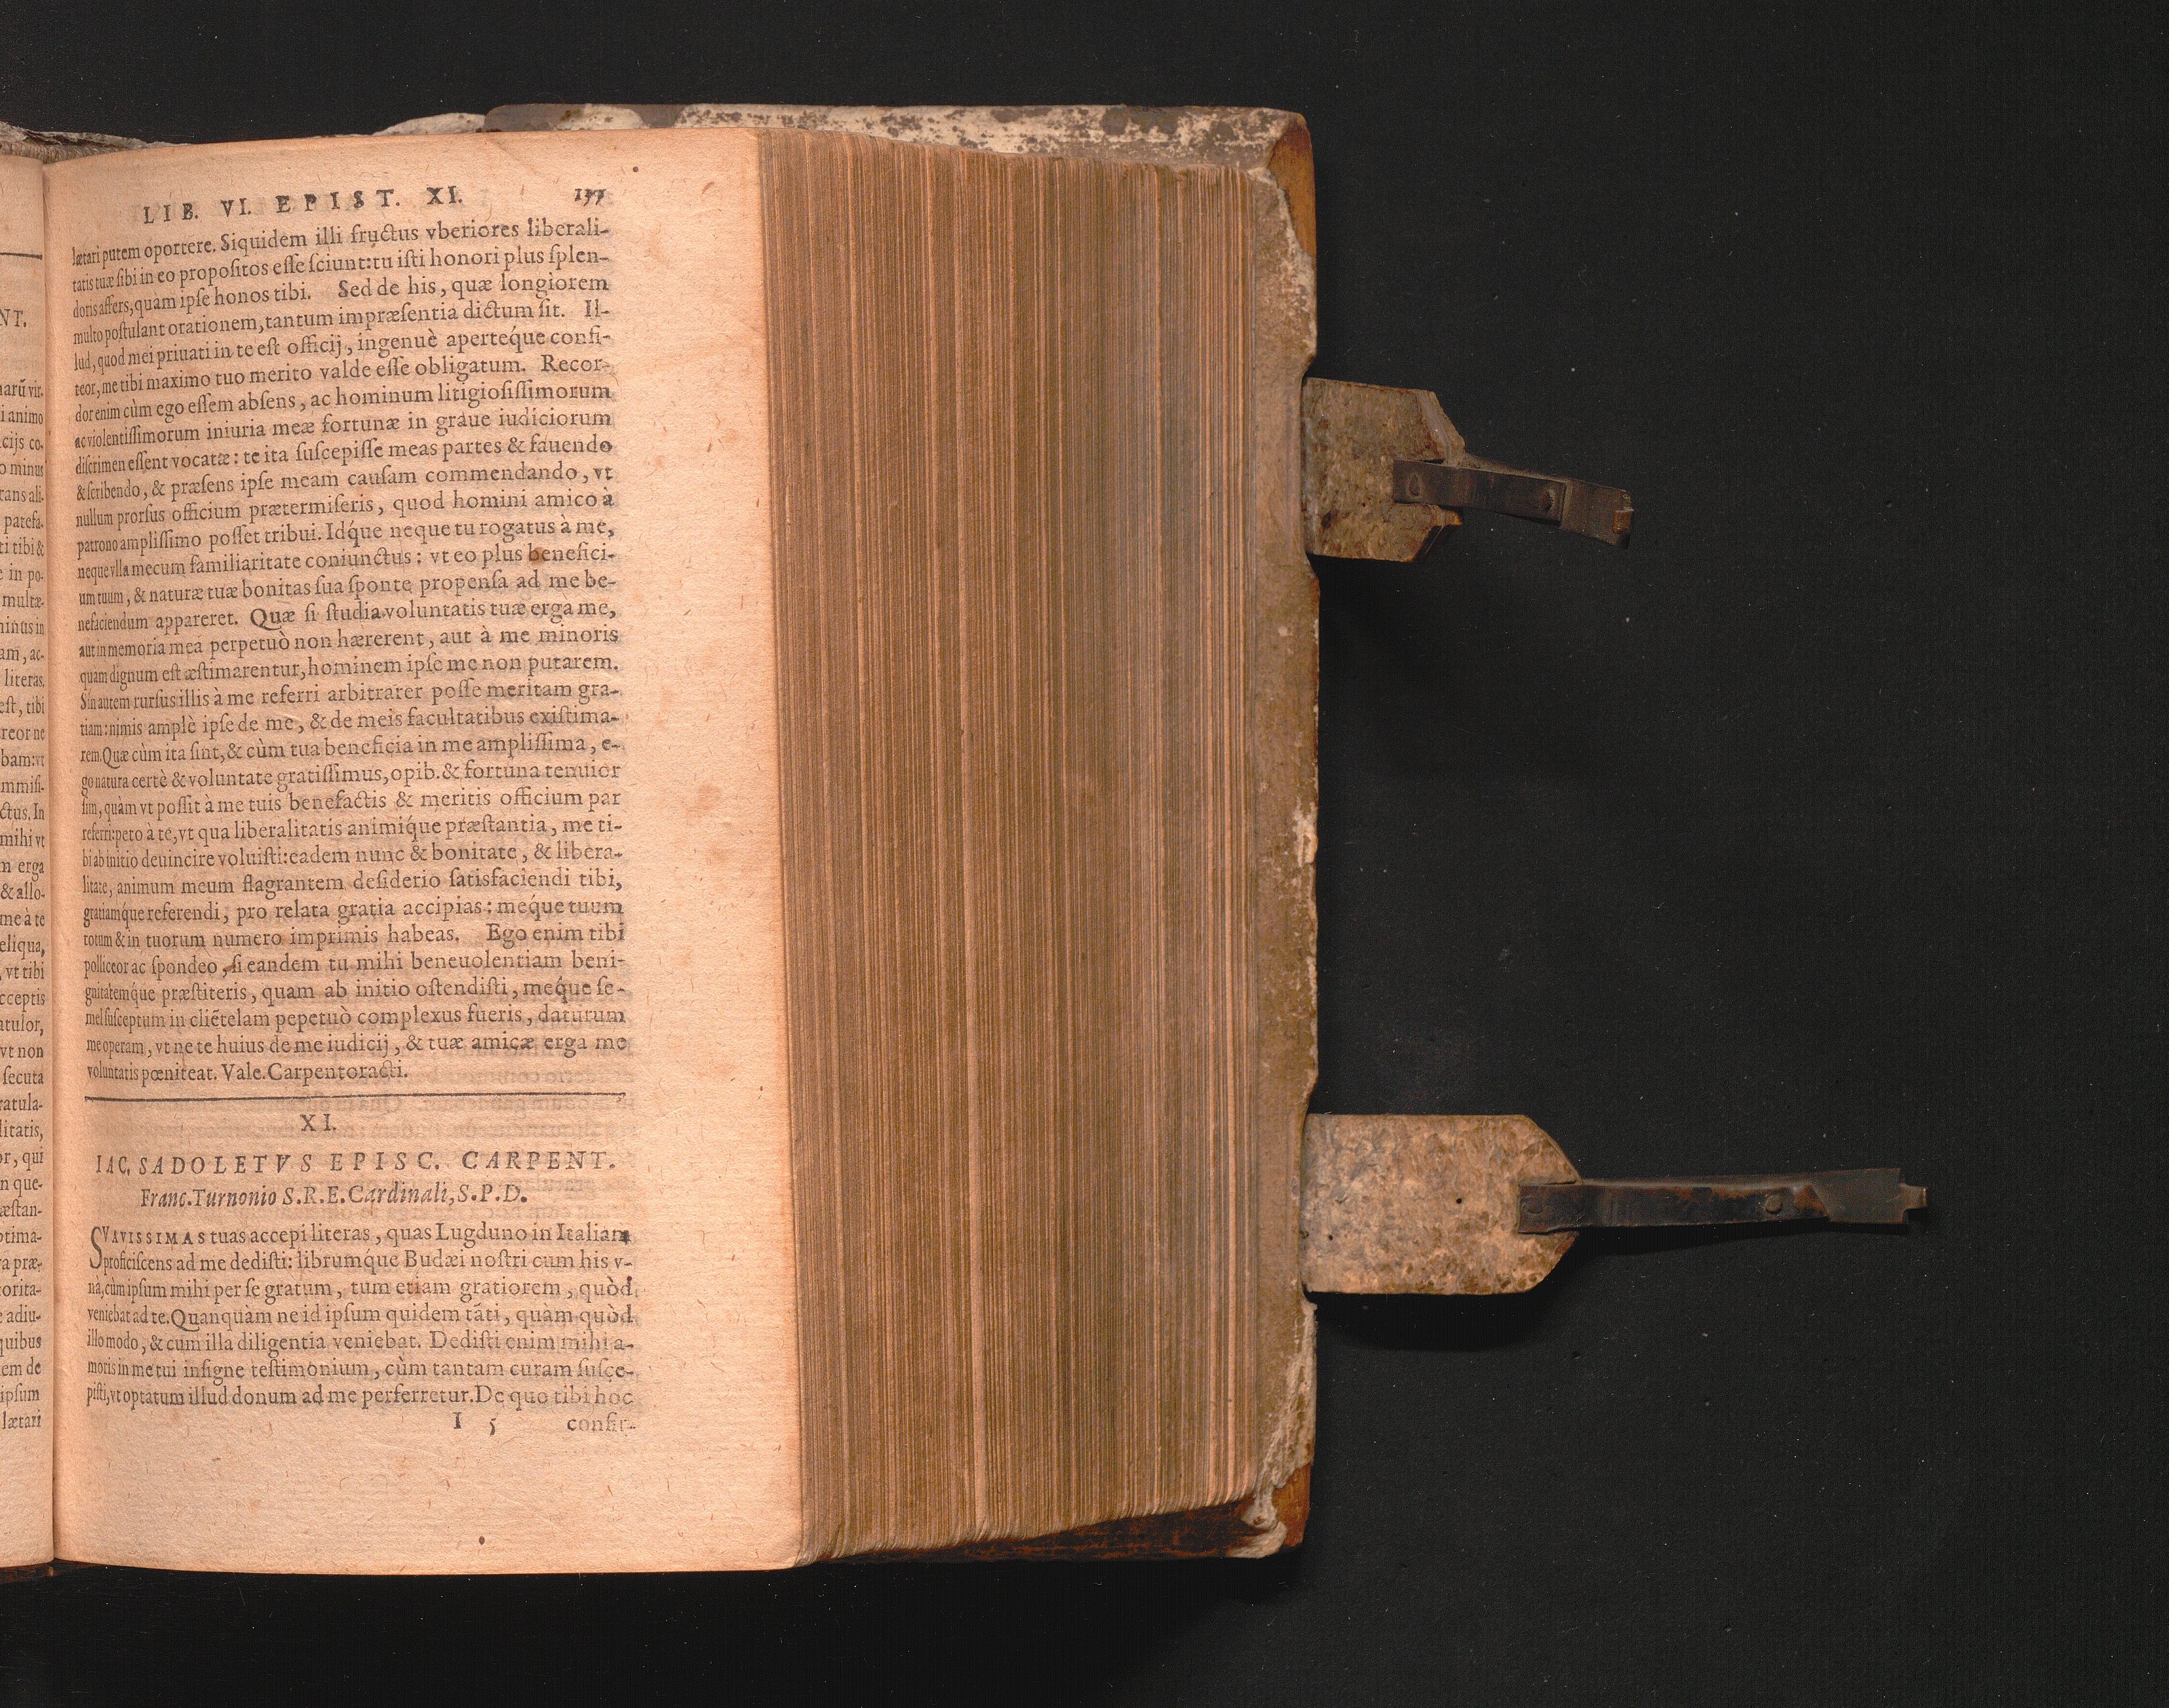 NT.
narū vir.
i animo
cijs co-
o minus
rans ali-
patefa-
ti tibi &
e in po-
multæ-
minus in
am, ac-
literas.
est, tibi
reor ne
bam: vt
mmisi-
ctus. In
mihi vt
m erga
& allo-
me à te
eliqua,
, vt tibi
cceptis
atulor,
vt non
secuta
ratula-
litatis,
or, qui
n que-
æstan-
ptima-
a præ-
torita-
e adiu-
quibus
em de
ipsum
lætari
LIB. VI. EPIST. XI.
lætari putem oportere. Siquidem illi fructus vberiores liberali-
tatis tuæ sibi in eo propositos esse sciunt: tu isti honori plus splen-
doris affers, quàm ipse honos tibi. Sed de his, quæ longiorem
multo postulant orationem, tantum impræsentia dictum sit. Il-
lud, quod mei priuati in te est officij, ingenuè aperteq́ue confi-
teor, me tibi maximo tuo merito valde esse obligatum. Recor-
dor enim cùm ego essem absens, ac hominum litigiosissimorum
ac violentissimorum iniuria meæ fortunæ in graue iudiciorum
discrimen essent vocatæ: te ita suscepisse meas partes & fauendo
& scribendo, & præsens ipse meam causam commendando, vt
nullum prorsus officium prætermiseris, quod homini amico à
patrono amplissimo posset tribui. Idq́ue neque tu rogatus à me,
neque vlla mecum familiaritate coniunctus: vt eo plus benefici-
um tuum, & naturæ tuæ bonitas sua sponte propensa ad me be-
nefaciendum appareret. Quæ si studia voluntatis tuæ erga me,
aut in memoria mea perpetuò non hærerent, aut à me minoris
quam dignum est æstimarentur, hominem ipse me non putarem.
Sin autem rursus illis à me referri arbitrarer posse meritam gra-
tiam: nimis amplè ipse de me, & de meis facultatibus existima-
rem. Quæ cùm ita sint, & cùm tua beneficia in me amplissima, e-
go natura certè & voluntate gratissimus, opib. & fortuna tenuior
sim, quàm vt possit à me tuis benefactis & meritis officium par
referri: peto à te, vt qua liberalitatis animiq́ue præstantia, me ti-
bi ab initio deuincire voluisti: eadem nunc & bonitate, & libera-
litate, animum meum flagrantem desiderio satisfaciendi tibi,
gratiamq́ue referendi, pro relata gratia accipias: meq́ue tuum
totum & in tuorum numero imprimis habeas. Ego enim tibi
polliceor ac spondeo, si eandem tu mihi beneuolentiam beni-
gnitatemq́ue præstiteris, quam ab initio ostendisti, meq́ue se-
mel susceptum in cliẽtelam pepetuò complexus fueris, daturum
me operam, vt ne te huius de me iudicij, & tuæ amicæ erga me
voluntatis pœniteat. Vale. Carpentoracti.
XI.
IAC. SADOLETVS EPISC. CARPENT.
Franc. Turnonio S. R. E. Cardinali, S. P. D.
SVAVISSIMAS tuas accepi literas, quas Lugduno in Italiam
proficiscens ad me dedisti: librumq́ue Budæi nostri cum his v-
na, cùm ipsum mihi per se gratum, tum etiam gratiorem, quòd
veniebat ad te. Quanquàm ne id ipsum quidem tãti, quàm quòd
illo modo, & cum illa diligentia veniebat. Dedisti enim mihi a-
moris in me tui insigne testimonium, cùm tantam curam susce-
pisti, vt optatum illud donum ad me perferretur. De quo tibi hoc
I 5 confir-